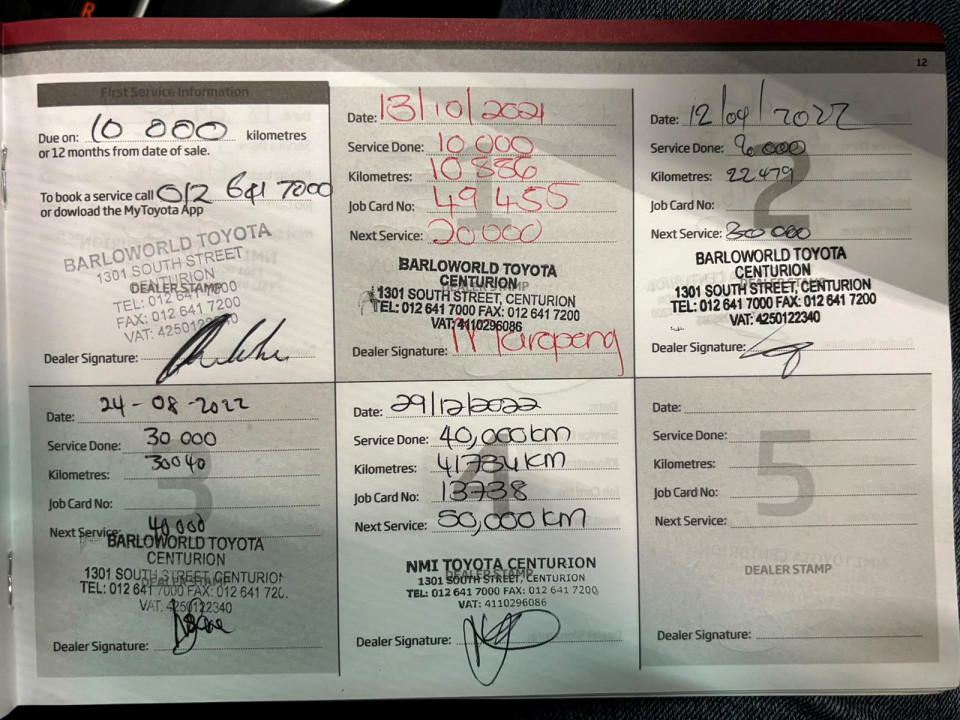 12
First Service Information
Due on: 10 000 kilometres
or 12 months from date of sale.
To book a service call 012 641 7000
or dowload the MyToyota App
BARLOWORLD TOYOTA
1301 SOUTH STREET
CENTURION
DEALER STAMP
TEL: 012 641 7000
FAX: 012 641 7200
VAT:
Dealer Signature:
1
Date: 13/10/2021
Service Done: 10 000
Kilometres: 10 886
Job Card No: 49 455
Next Service: 20 000
BARLOWORLD TOYOTA
CENTURION
DEALER STAMP
1301 SOUTH STREET, CENTURION
TEL: 012 641 7000 FAX: 012 641 7200
VAT: 4110296086
Dealer Signature: Maropeng
2
Date: 12/04/2022
Service Done:
Kilometres: 22479
Job Card No:
Next Service: 30 000
BARLOWORLD TOYOTA
CENTURION
DEALER STAMP
1301 SOUTH STREET, CENTURION
TEL: 012 641 7000 FAX: 012 641 7200
VAT: 4250122340
Dealer Signature:
3
Date: 24-08-2022
Service Done: 30 000
Kilometres: 30040
Job Card No:
Next Service: 40 000
BARLOWORLD TOYOTA
CENTURION
1301 SOUTH STREET, CENTURION
DEALER STAMP
TEL: 012 641 7000 FAX: 012 641 720
VAT. 4250122340
Dealer Signature:
4
Date: 29/12/2022
Service Done: 40,000km
Kilometres: 41734km
Job Card No: 13738
Next Service: 50,000km
NMI TOYOTA CENTURION
DEALER STAMP
1301 SOUTH STREET, CENTURION
TEL: 012 641 7000 FAX: 012 641 7200
VAT: 4110296086
Dealer Signature:
5
Date:
Service Done:
Kilometres:
Job Card No:
Next Service:
DEALER STAMP
Dealer Signature: